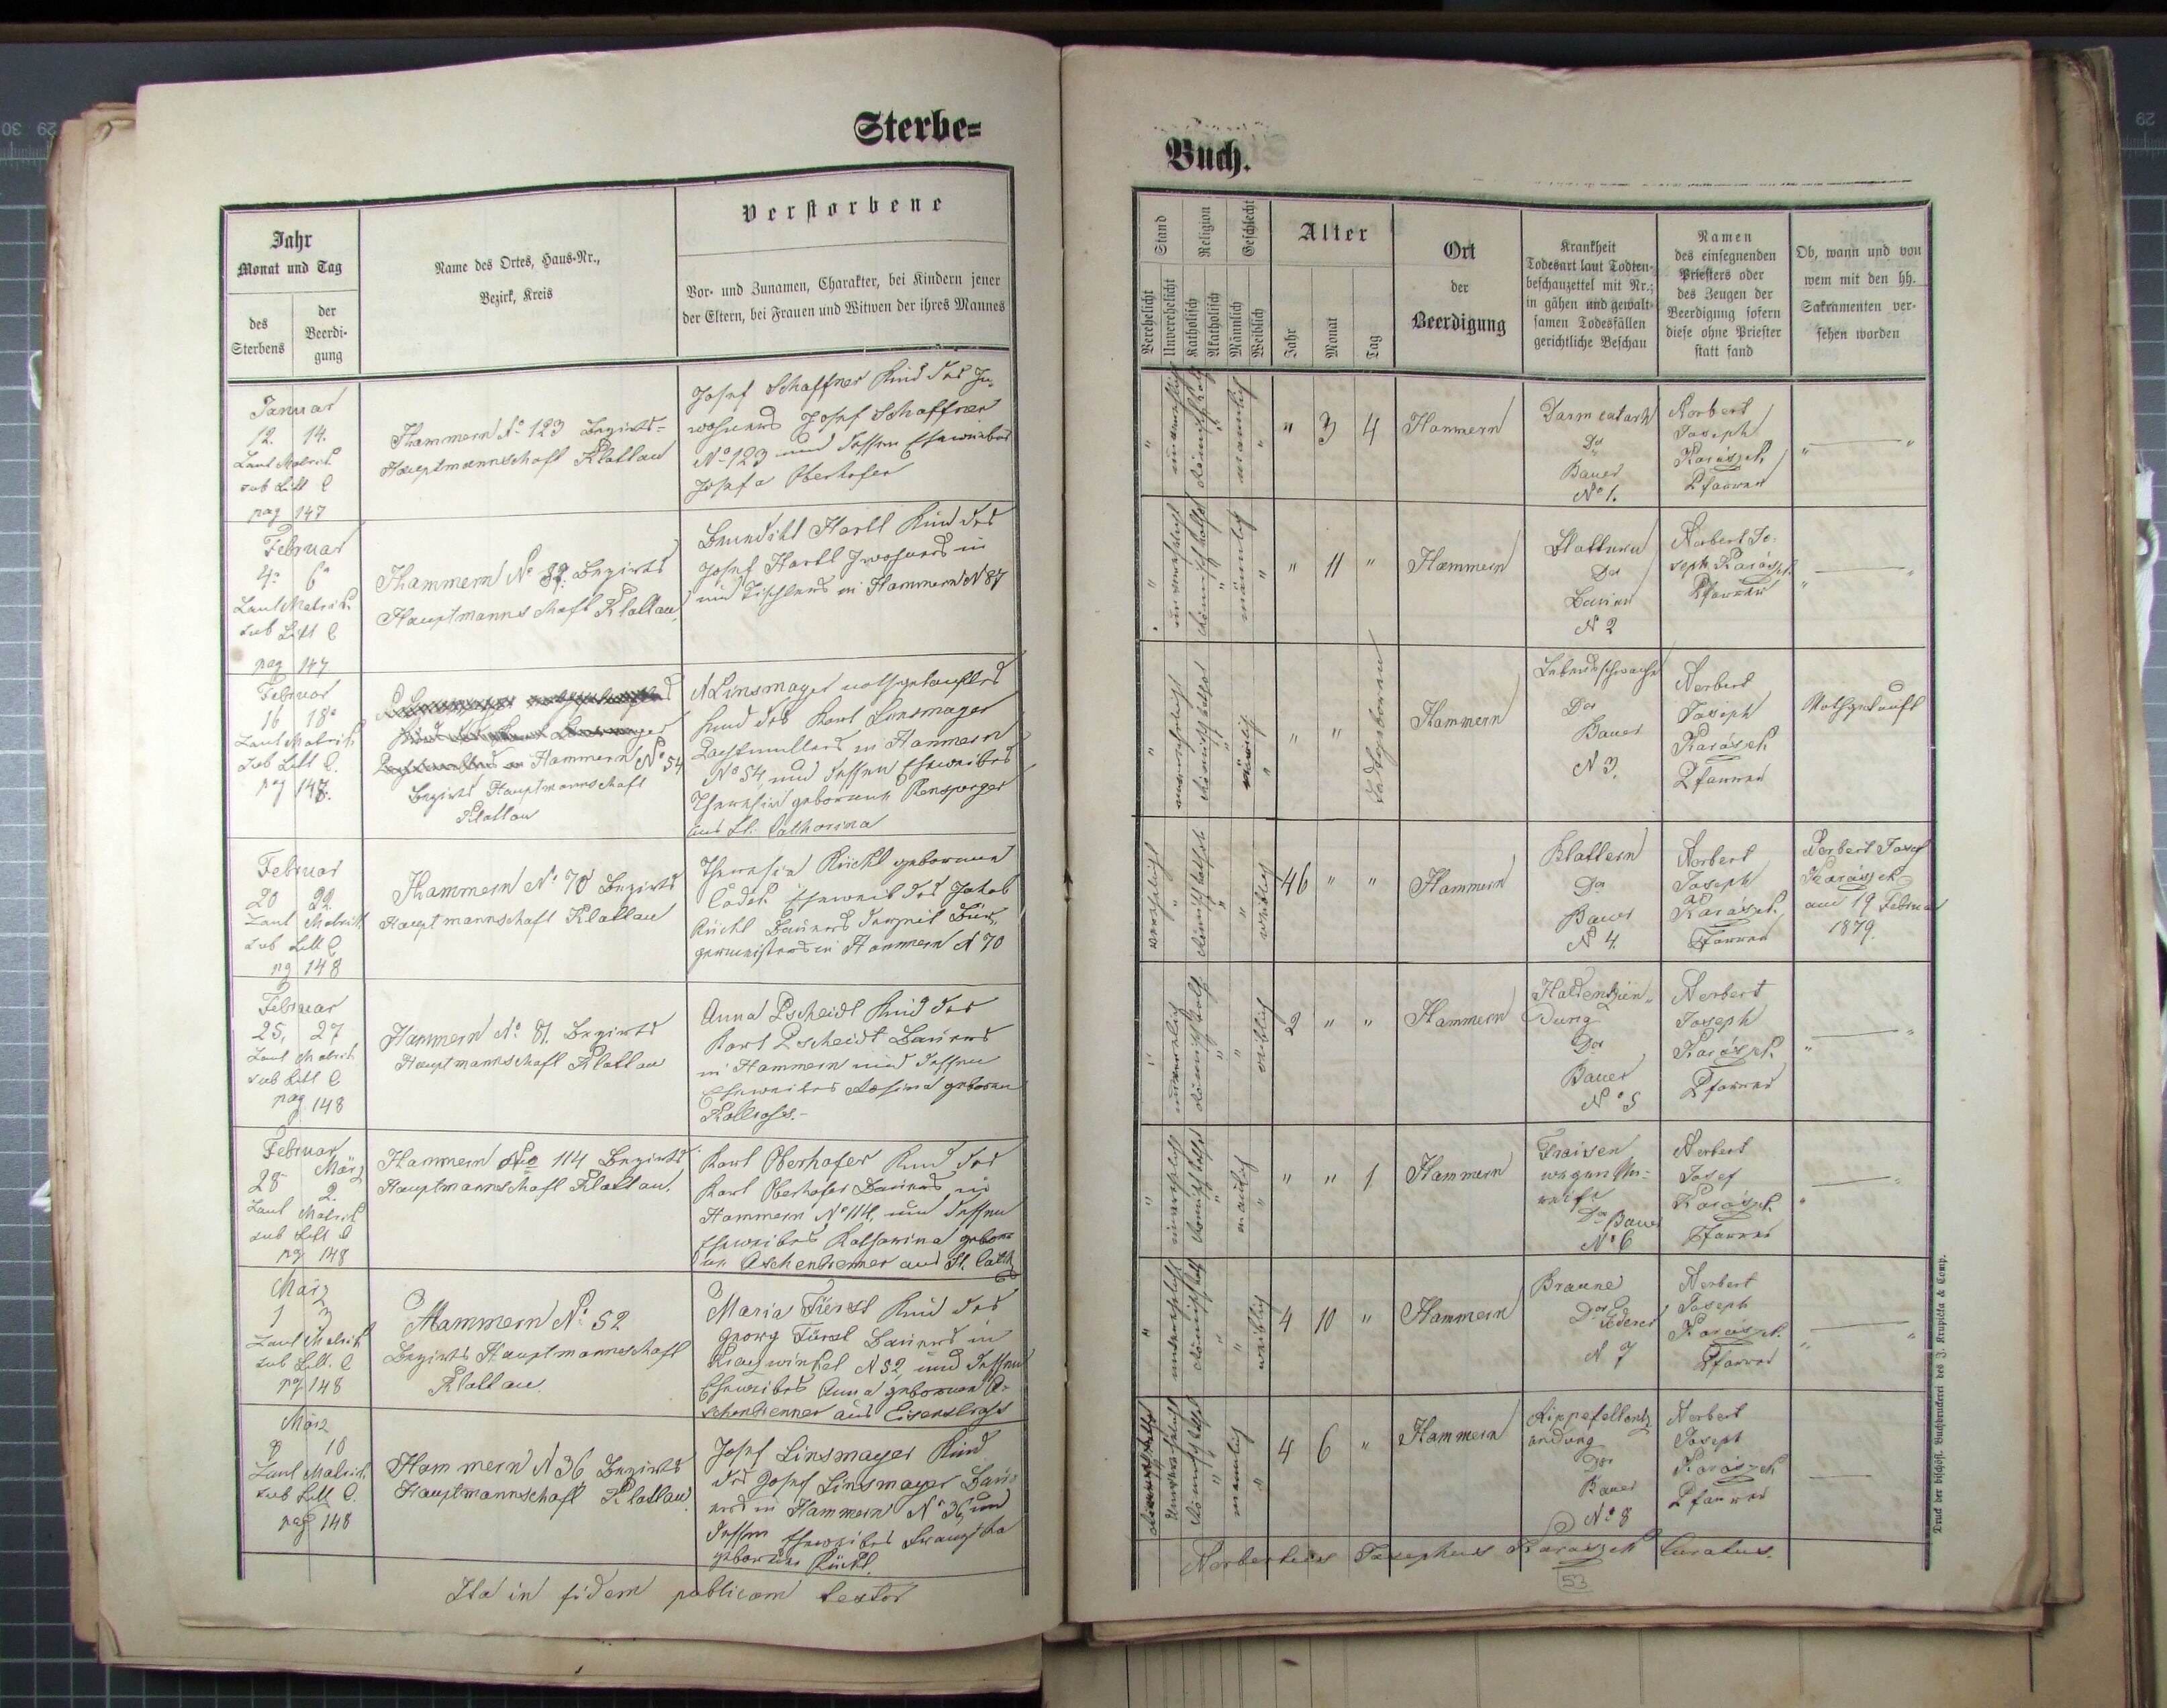 Sterbe=
Jahr
Monat und Tag
des
Sterbens
der
Beerdi-
gung
Name des Ortes, Haus-Nr.,
Bezirk, Kreis
Verstorbene
Vor- und Zunamen, Charakter, bei Kindern jener
der Eltern, bei Frauen und Witwen der ihres Mannes
Januar
12. 14.
Laut Matrik
sub Litt C
pag 147
Hammern No 123 Bezirks=
Hauptmannschaft Klattau
Josef Schaffner Kind des In-
wohners Josef Schaffner
No 123 und dessen Eheweibes
Josefa Oberhofer
Februar
4. 6.
Laut Matrik
sub Litt C
pag 147
Hammern No Bezirks
Hauptmannschaft Klattau
Benedikt Hartl Kind des
Josef Hartl Inwohners in
und Tischlers in Hammern N 87
Februar
16 18
Laut Matrik
sub Litt C.
pag 147.
Hammern No 54
Bezirks Hauptmannschaft
Klattau
N Linsmayer nothgetauftes
Kind des Karl Linsmayer
in Hammern
No 54 und dessen Eheweibes
Theresia geborene Rensperger
aus St. Catharina
Februar
20 22
Laut Matrik
sub Litt C
pg 148
Hammern No 70 Bezirks
Hauptmannschaft Klattau
Theresia Rückl geborene
Eheweib des Jakob
Rückl Bauers derzeit Bür-
germeisters in Hammern N 70
Februar
25, 27
Laut Matrik
sub Litt C
pag 148
Hammern No 81. Bezirks
Hauptmannschaft Klattau
Anna Pscheidt Kind des
Karl Pscheidt Bauers
in Hammern und dessen
Eheweibes Rosina geboren
Februar
28 März
2.
Laut Matrik
sub Litt C
pg 148
Hammern No 114 Bezirks
Hauptmannschaft Klattau.
Karl Oberhofer Kind des
Karl Oberhofer Bauers in
Hammern No 114, und dessen
Eheweibes Katharina gebore
ne Aschenbrenner aus St. Cath
März
1 3
Laut Matrik
sub Litt. C
pg 148
Hammern No 52
Bezirks Hauptmannschaft
Klattau.
Maria Fürst Kind des
Georg Fürst Bauers in
N 52, und dessen
Eheweibes Anna geborenen A-
schenbrenner aus Eisenstrass
März
8 10
Laut Matrik
sub Litt C.
pag 148
Hammern N 36 Bezirks
Hauptmannschaft Klattau
Josef Linsmayer Kind
des Josef Linsmayer Bau-
ers in Hammern No 36, und
dessen Eheweibes Franziska
geborene Rückl.
Ita in fidem publicam testor
Buch.
Stand
Verehelicht
Unverehelicht
Religion
Katholisch
Akatholisch
Geschlecht
Männlich
Weiblich
Alter
Jahr
Monat
Tag
Ort
der
Beerdigung
Krankheit
Todesart laut Todten-
beschauzettel mit Nr.;
in gähen und gewalt-
samen Todesfällen
gerichtliche Beschau
Namen
des einsegnenden
Priesters oder
des Zeugen der
Beerdigung sofern
diese ohne Priester
statt fand
Ob, wann und von
wem mit den hh.
Sakramenten ver-
sehen worden
männlich
" 3 4
Hammern
Darmcatarh
Dr
Bauer
No 1.
Norbert
Joseph
Karásek
Pfarrer
männlich
" 11 "
Hammern
Blattern
Dr
Bauer
N 2
Norbert Jo-
seph Karásek
Pfarrer
" "
Todtgeboren
Hammern
Lebensschwäche
Dr
Bauer
N 3.
Norbert
Joseph
Karásek
Pfarrer
Nothgetauft
verehelicht
weiblich
46 " "
Hammern
Blattern
Dr
Bauer
N 4.
Norbert
Joseph
Karásek
Pfarrer
Norbert Josef
Karásek
am 19 Februar
1879.
weiblich
2 " "
Hammern
Dr
Bauer
No 5
Norbert
Joseph
Karásek
Pfarrer
männlich
" " 1
Hammern
Fraisen
wegen Un-
reife
Dr Bauer
No 6
Norbert
Josef
Karásek
Pfarrer
weiblich
4 10 "
Hammern
Braune
Dr
Lederer
N 7
Norbert
Joseph
Karásek
Pfarrer
männlich
4 6 "
Hammern
Rippefellentz
ündung
Dr
Bauer
No 8
Norbert
Joseph
Karásek
Pfarrer
Norbertus Josephus Karaszek Curatus.
53
Druck der bischöfl. Buchdruckerei des J. Krupička & Comp.